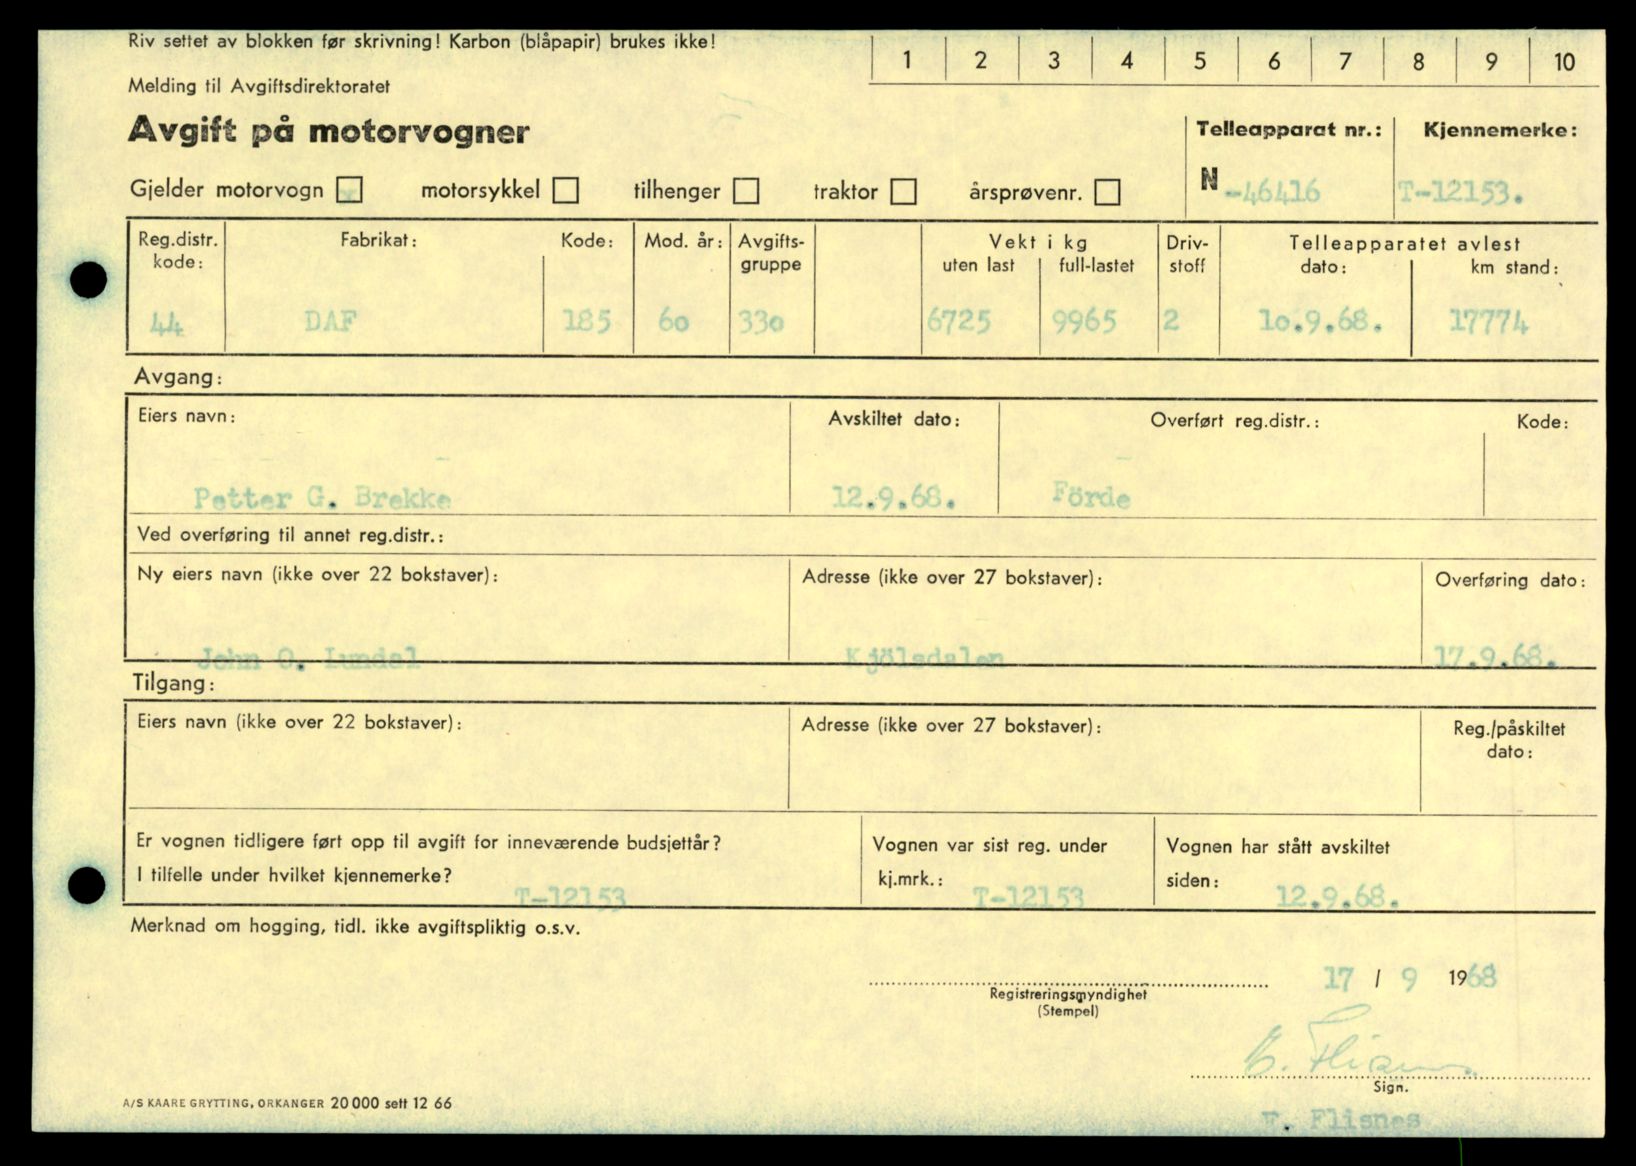 Riv settet av blokken før skrivning! Karbon (blåpapir) brukes ikke!
1 2 3 4 5 6 7 8 9 10
Melding til Avgiftsdirektoratet
Avgift på motorvogner
Telleapparat nr.: Kjennemerke:
Gjelder motorvogn x motorsykkel tilhenger traktor årsprøvenr.
N -46416 T-12153.
Reg.distr. kode: Fabrikat: Kode: Mod. år: Avgifts-gruppe Vekt i kg uten last full-lastet Driv-stoff Telleapparatet avlest dato: km stand:
44 DAF 185 60 330 6725 9965 2 10.9.68. 17774
Avgang:
Eiers navn: Avskiltet dato: Overført reg.distr.: Kode:
Petter G. Brekke 12.9.68. Förde
Ved overføring til annet reg.distr.:
Ny eiers navn (ikke over 22 bokstaver): Adresse (ikke over 27 bokstaver): Overføring dato:
John O. Lundal Kjölsdalen 17.9.68.
Tilgang:
Eiers navn (ikke over 22 bokstaver): Adresse (ikke over 27 bokstaver): Reg./påskiltet dato:
Er vognen tidligere ført opp til avgift for inneværende budsjettår?
I tilfelle under hvilket kjennemerke? T-12153
Vognen var sist reg. under
kj.mrk.: T-12153
Vognen har stått avskiltet
siden: 12.9.68.
Merknad om hogging, tidl. ikke avgiftspliktig o.s.v.
17 / 9 1968
Registreringsmyndighet
(Stempel)
E. Flisnes
Sign.
E. Flisnes
A/S KAARE GRYTTING, ORKANGER 20 000 sett 12 66